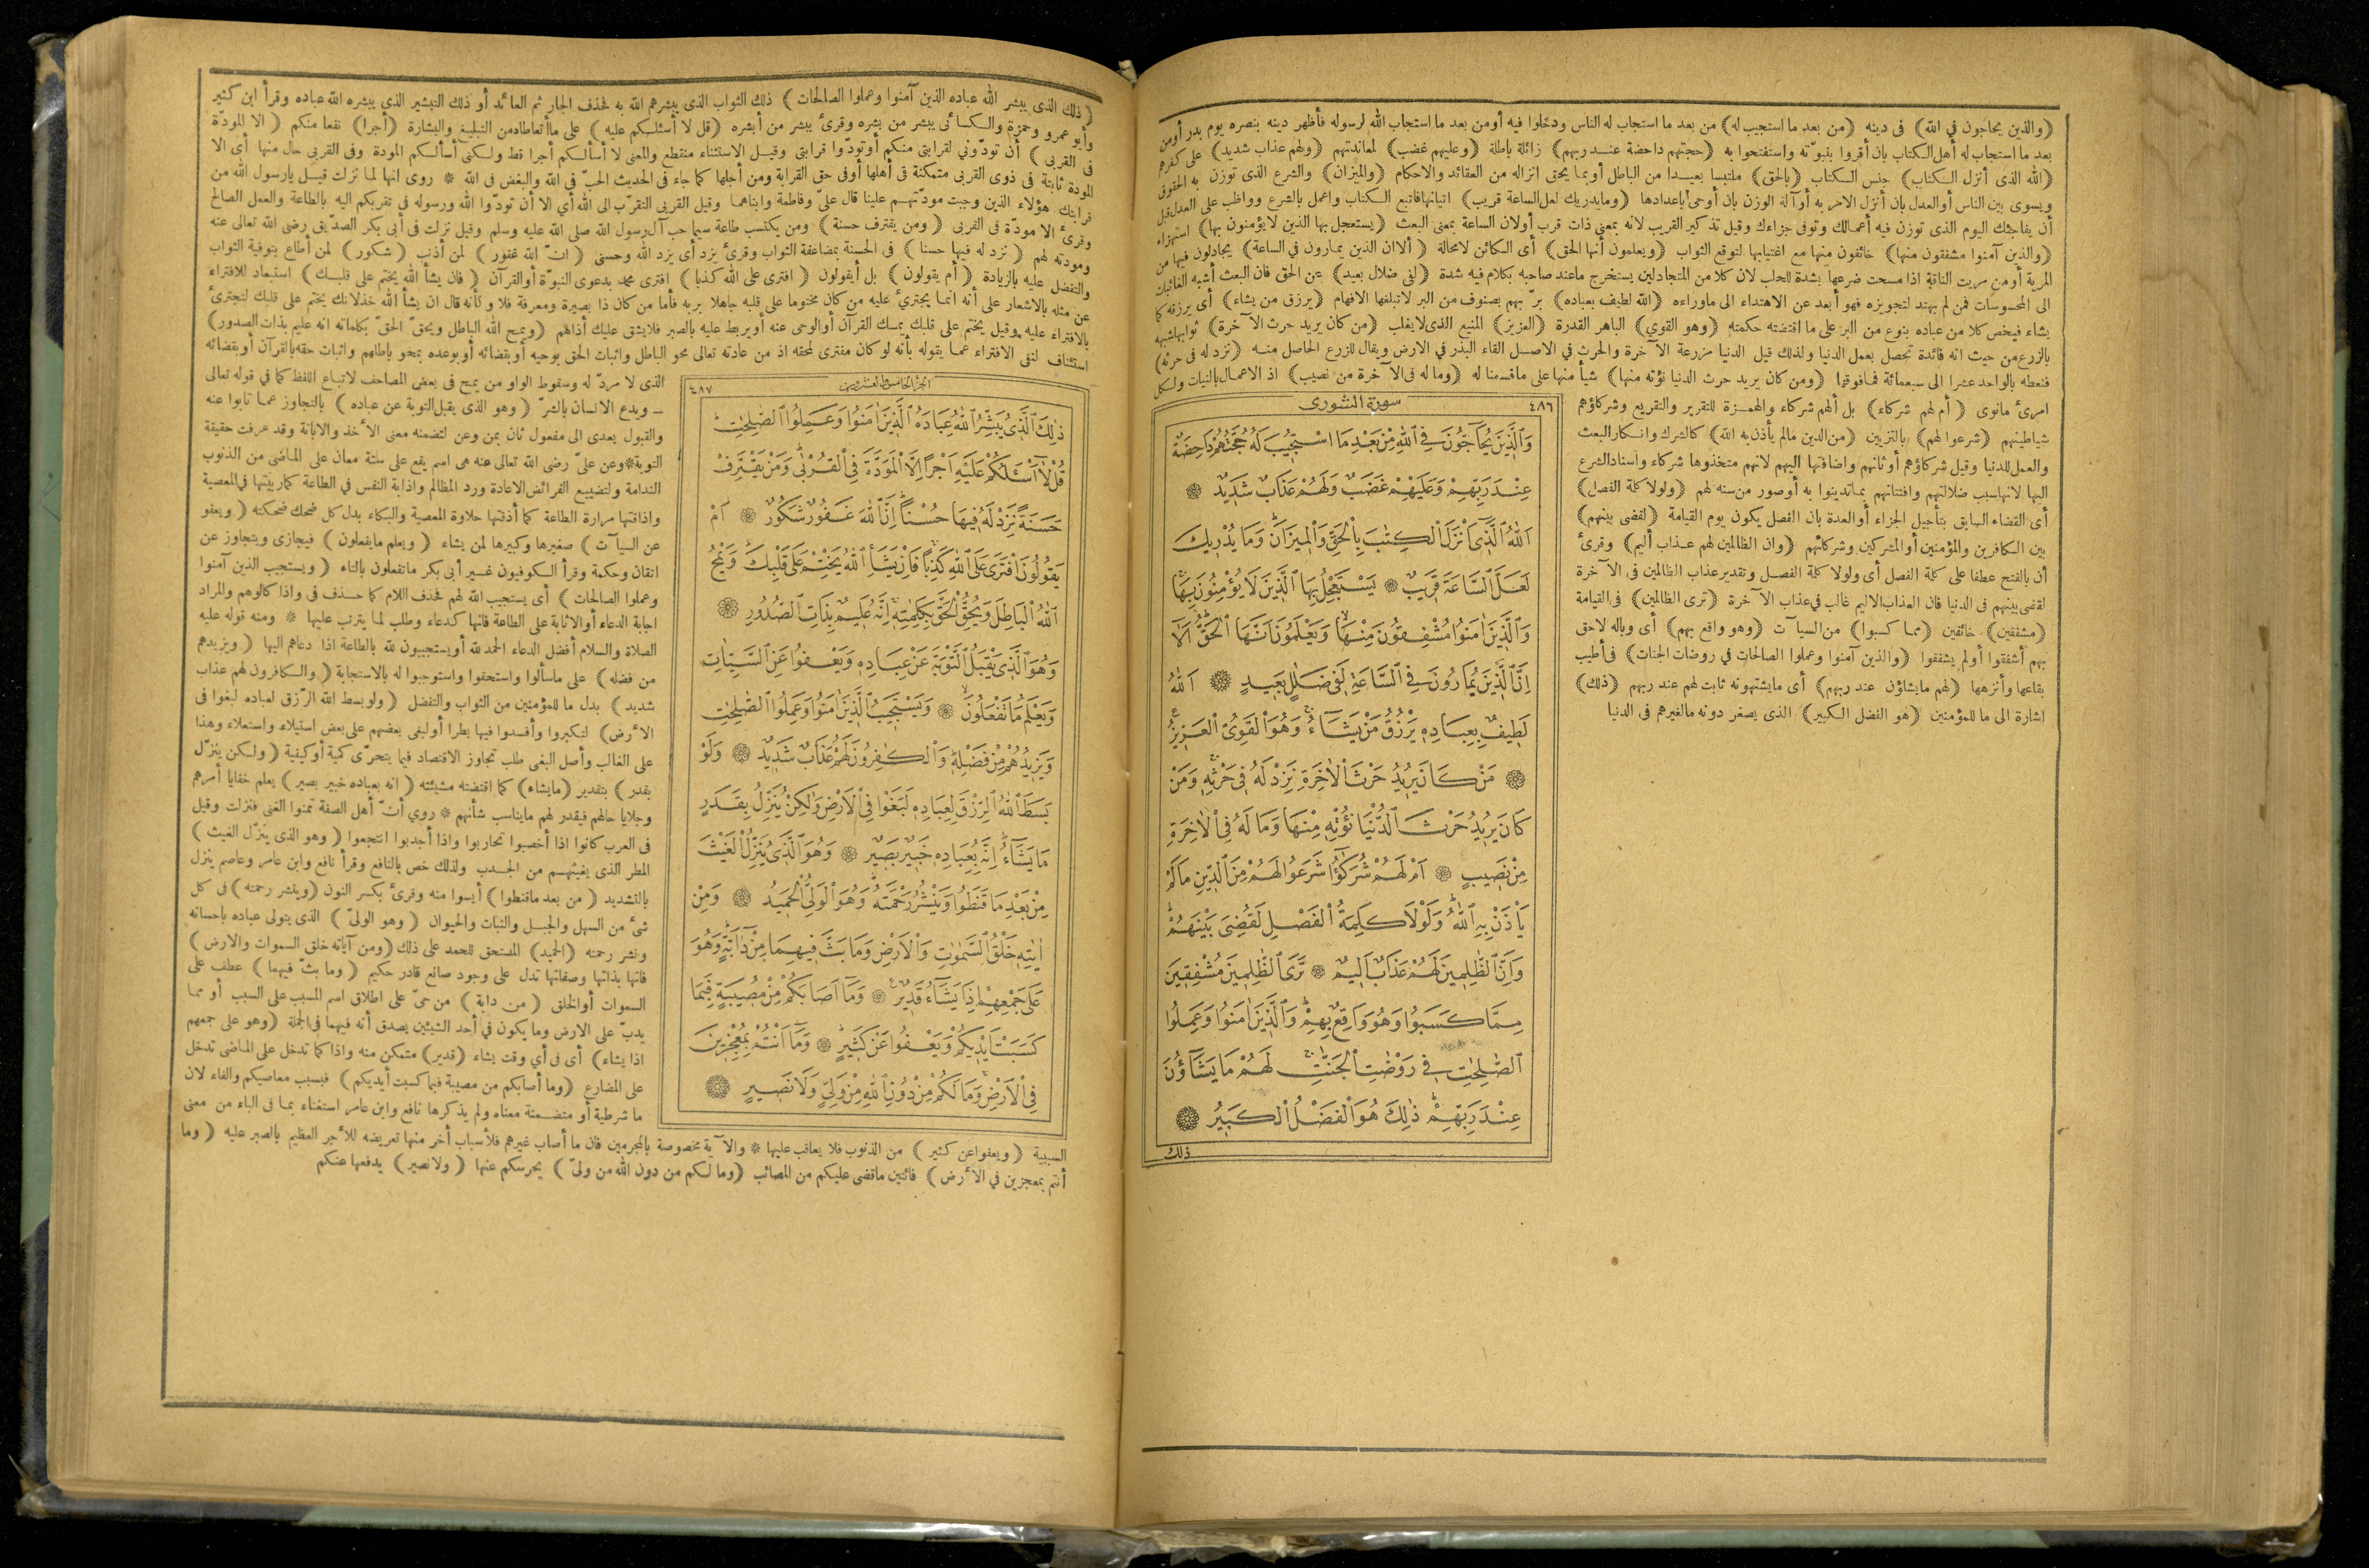 ﴿والذين يحاجون في الله﴾ فى دينه ﴿من بعد ما استجيب له﴾ من بعد ما استجاب له الناس ودخلوا فيه أومن بعد ما استجاب الله لرسوله فأظهر دينه بنصره يوم بدر أومن
بعد ما استجاب له أهل الكتاب بان أقروا بنبوّته واستفتحوا به ﴿حجتهم داحضة عند ربهم﴾ زائلة باطلة ﴿وعليهم غضب﴾ لمعاندتهم ﴿ولهم عذاب شديد﴾ على كفرهم
﴿الله الذى أنزل الكتاب﴾ جنس الكتاب ﴿بالحق﴾ ملتبسا بعيدا من الباطل أوبما يحق انزاله من العقائد والاحكام ﴿والميزان﴾ والشرع الذى توزن به الحقوق
ويسوى بين الناس أوالعدل بان أنزل الامر به أوآلة الوزن بان أوحى بأعدادها ﴿ومايدريك لعل الساعة قريب﴾ اتيانها فاتبع الكتاب واعمل بالشرع وواظب على العدل قبل
أن يفاجئك اليوم الذى توزن فيه أعمالك وتوفى جزاءك وقيل تذكير القريب لانه بمعنى ذات قرب أولان الساعة بمعنى البعث ﴿يستعجل بها الذين لايؤمنون بها﴾ استهزاء
﴿والذين آمنوا مشفقون منها﴾ خائفون منها مع اغتيابها لتوقع الثواب ﴿ويعلمون أنها الحق﴾ أى الكائن لامحالة ﴿ألاان الذين يمارون في الساعة﴾ يجادلون فيها من
المرية أومن مريت الناقة اذا مسحت ضرعها بشدة للحلب لان كلا من المتجادلين يستخرج ماعند صاحبه بكلام فيه شدة ﴿لفى ضلال بعيد﴾ عن الحق فان البعث أشبه الغائبات
الى المحسوسات فمن لم يهتد لتجويزه فهو أبعد عن الاهتداء الى ماوراءه ﴿الله لطيف بعباده﴾ برّ بهم بصنوف من البر لاتبلغها الافهام ﴿يرزق من يشاء﴾ أى يرزقه كما
يشاء فيخص كلا من عباده بنوع من البر على ما اقتضته حكمته ﴿وهو القوي﴾ الباهر القدرة ﴿العزيز﴾ المنيع الذى لايغلب ﴿من كان يريد حرث الآخرة﴾ ثوابها شبهه
بالزرع من حيث انه فائدة تحصل بعمل الدنيا ولذلك قيل الدنيا مزرعة الآخرة والحرث في الاصل القاء البذر في الارض ويقال للزرع الحاصل منه ﴿نزد له فى حرثه﴾
فنعطه بالواحد عشرا الى سبعمائة فمافوقها ﴿ومن كان يريد حرث الدنيا نؤته منها﴾ شيأ منها على ماقسمنا له ﴿وما له فى الآخرة من نصيب﴾ اذ الاعمال بالنيات ولكل
امرئ مانوى ﴿أم لهم شركاء﴾ بل ألهم شركاء والهمزة للتقرير والتقريع وشركاؤهم
شياطينهم ﴿شرعوا لهم﴾ بالتزيين ﴿من الدين مالم يأذن به الله﴾ كالشرك وانكار البعث
والعمل للدنيا وقيل شركاؤهم أوثانهم واضافتها اليهم لانهم متخذوها شركاء واسناد الشرع
اليها لانها سبب ضلالتهم وافتتانهم بماتدينوا به أوصور من سنه لهم ﴿ولولا كلمة الفصل﴾
أى القضاء السابق بتأجيل الجزاء أوالعدة بان الفصل يكون يوم القيامة ﴿لقضى بينهم﴾
بين الكافرين والمؤمنين أوالمشركين وشركائهم ﴿وان الظالمين لهم عذاب أليم﴾ وقرئ
أن بالفتح عطفا على كلمة الفصل أى ولولا كلمة الفصل وتقدير عذاب الظالمين فى الآخرة
لقضى بينهم فى الدنيا فان العذاب الاليم غالب في عذاب الآخرة ﴿ترى الظالمين﴾ فى القيامة
﴿مشفقين﴾ خائفين ﴿مما كسبوا﴾ من السيآت ﴿وهو واقع بهم﴾ أى وباله لاحق
بهم أشفقوا أولم يشفقوا ﴿والذين آمنوا وعملوا الصالحات في روضات الجنات﴾ فى أطيب
بقاعها وأنزهها ﴿لهم مايشاؤن عند ربهم﴾ أى مايشتهونه ثابت لهم عند ربهم ﴿ذلك﴾
اشارة الى ما للمؤمنين ﴿هو الفضل الكبير﴾ الذى يصغر دونه مالغيرهم فى الدنيا
٤٨٦ سورة الشورى
وَالَّذِينَ يُحَاجُّونَ فِي اللهِ مِنْ بَعْدِ مَا اسْتُجِيبَ لَهُ حُجَّتُهُمْ دَاحِضَةٌ
عِنْدَ رَبِّهِمْ وَعَلَيْهِمْ غَضَبٌ وَلَهُمْ عَذَابٌ شَدِيدٌ ۞
اَللهُ الَّذِي اَنْزَلَ الْكِتَابَ بِالْحَقِّ وَالْمِيزَانَ وَمَا يُدْرِيكَ
لَعَلَّ السَّاعَةَ قَرِيبٌ ۞ يَسْتَعْجِلُ بِهَا الَّذِينَ لَا يُؤْمِنُونَ بِهَا
وَالَّذِينَ اٰمَنُوا مُشْفِقُونَ مِنْهَا وَيَعْلَمُونَ اَنَّهَا الْحَقُّ اَلَا
اِنَّ الَّذِينَ يُمَارُونَ فِي السَّاعَةِ لَفِي ضَلَالٍ بَعِيدٍ ۞ اَللهُ
لَطِيفٌ بِعِبَادِهِ يَرْزُقُ مَنْ يَشَاءُ وَهُوَ الْقَوِيُّ الْعَزِيزُ
۞ مَنْ كَانَ يُرِيدُ حَرْثَ الْاٰخِرَةِ نَزِدْ لَهُ فِي حَرْثِهِ وَمَنْ
كَانَ يُرِيدُ حَرْثَ الدُّنْيَا نُؤْتِهِ مِنْهَا وَمَا لَهُ فِي الْاٰخِرَةِ
مِنْ نَصِيبٍ ۞ اَمْ لَهُمْ شُرَكٰؤُا شَرَعُوا لَهُمْ مِنَ الدِّينِ مَا لَمْ
يَأْذَنْ بِهِ اللهُ وَلَوْلَا كَلِمَةُ الْفَصْلِ لَقُضِيَ بَيْنَهُمْ
وَاِنَّ الظَّالِمِينَ لَهُمْ عَذَابٌ اَلِيمٌ ۞ تَرَى الظَّالِمِينَ مُشْفِقِينَ
مِمَّا كَسَبُوا وَهُوَ وَاقِعٌ بِهِمْ وَالَّذِينَ اٰمَنُوا وَعَمِلُوا
الصَّالِحَاتِ فِي رَوْضَاتِ الْجَنَّاتِ لَهُمْ مَا يَشَاؤُنَ
عِنْدَ رَبِّهِمْ ذٰلِكَ هُوَ الْفَضْلُ الْكَبِيرُ ۞
ذلك
﴿ذلك الذى يبشر الله عباده الذين آمنوا وعملوا الصالحات﴾ ذلك الثواب الذى يبشرهم الله به فحذف الجار ثم العائد أو ذلك التبشير الذى يبشره الله عباده وقرأ ابن كثير
وأبو عمرو وحمزة والكسائى يبشر من بشره وقرئ يبشر من أبشره ﴿قل لا أسئلكم عليه﴾ على ماأتعاطاه من التبليغ والبشارة ﴿أجرا﴾ نفعا منكم ﴿الا المودّة
فى القربى﴾ أن تودّوني لقرابتى منكم أوتودّوا قرابتى وقيل الاستثناء منقطع والمعنى لا أسألكم أجرا قط ولكنى أسألكم المودة وفى القربى حال منها أى الا
المودة ثابتة فى ذوى القربى متمكنة فى أهلها أوفى حق القرابة ومن أجلها كما جاء فى الحديث الحبّ فى الله والبغض فى الله * روى انها لما نزلت قيل يارسول الله من
قرابتك هؤلاء الذين وجبت مودّتهم علينا قال علىّ وفاطمة وابناهما وقيل القربى التقرّب الى الله أي الا أن تودّوا الله ورسوله فى تقربكم اليه بالطاعة والعمل الصالح
وقرئ الا مودّة فى القربى ﴿ومن يقترف حسنة﴾ ومن يكتسب طاعة سيما حب آل رسول الله صلى الله عليه وسلم وقيل نزلت فى أبى بكر الصدّيق رضى الله تعالى عنه
ومودته لهم ﴿نزد له فيها حسنا﴾ فى الحسنة بمضاعفة الثواب وقرئ يزد أى يزد الله وحسنى ﴿انّ الله غفور﴾ لمن أذنب ﴿شكور﴾ لمن أطاع بتوفية الثواب
والتفضل عليه بالزيادة ﴿أم يقولون﴾ بل أيقولون ﴿افترى على الله كذبا﴾ افترى محمد بدعوى النبوّة أوالقرآن ﴿فان يشأ الله يختم على قلبك﴾ استبعاد للافتراء
عن مثله بالاشعار على أنه انما يجترئ عليه من كان مختوما على قلبه جاهلا بربه فأما من كان ذا بصيرة ومعرفة فلا وكأنه قال ان يشأ الله خذلانك يختم على قلبك لتجترئ
بالافتراء عليه وقيل يختم على قلبك يمسك القرآن أوالوحى عنه أويربط عليه بالصبر فلايشق عليك أذاهم ﴿ويمح الله الباطل ويحقّ الحقّ بكلماته انه عليم بذات الصدور﴾
استئناف لنفى الافتراء عما يقوله بأنه لو كان مفترى لمحقه اذ من عادته تعالى محو الباطل واثبات الحق بوحيه أوبقضائه أوبوعده بمحو باطلهم واثبات حقه بالقرآن أوبقضائه
الذى لا مردّ له وسقوط الواو من يمح فى بعض المصاحف لاتباع اللفظ كما في قوله تعالى
ويدع الانسان بالشرّ ﴿وهو الذى يقبل التوبة عن عباده﴾ بالتجاوز عما تابوا عنه
والقبول يعدى الى مفعول ثان بمن وعن لتضمنه معنى الأخذ والابانة وقد عرفت حقيقة
التوبة * وعن علىّ رضى الله تعالى عنه هى اسم يقع على ستة معان على الماضى من الذنوب
الندامة ولتضييع الفرائض الاعادة ورد المظالم واذابة النفس في الطاعة كماربيتها في المعصية
واذاقتها مرارة الطاعة كما أذقتها حلاوة المعصية والبكاء بدل كل ضحك ضحكته ﴿ويعفو
عن السيآت﴾ صغيرها وكبيرها لمن يشاء ﴿ويعلم مايفعلون﴾ فيجازى ويتجاوز عن
اتقان وحكمة وقرأ الكوفيون غير أبى بكر ماتفعلون بالتاء ﴿ويستجيب الذين آمنوا
وعملوا الصالحات﴾ أى يستجيب الله لهم فحذف اللام كما حذف فى واذا كالوهم والمراد
اجابة الدعاء أوالاثابة على الطاعة فانها كدعاء وطلب لما يترتب عليها * ومنه قوله عليه
الصلاة والسلام أفضل الدعاء الحمد لله أويستجيبون لله بالطاعة اذا دعاهم اليها ﴿ويزيدهم
من فضله﴾ على ماسألوا واستحقوا واستوجبوا له بالاستجابة ﴿والكافرون لهم عذاب
شديد﴾ بدل ما للمؤمنين من الثواب والتفضل ﴿ولوبسط الله الرّزق لعباده لبغوا فى
الأرض﴾ لتكبروا وأفسدوا فيها بطرا أولبغى بعضهم على بعض استيلاء واستعلاء وهذا
على الغالب وأصل البغى طلب تجاوز الاقتصاد فيما يتحرّى كمية أوكيفية ﴿ولكن ينزّل
بقدر﴾ بتقدير ﴿مايشاء﴾ كما اقتضته مشيئته ﴿انه بعباده خبير بصير﴾ يعلم خفايا أمرهم
وجلايا حالهم فيقدر لهم مايناسب شأنهم * روي أنّ أهل الصفة تمنوا الغنى فنزلت وقيل
فى العرب كانوا اذا أخصبوا تحاربوا واذا أجدبوا انتجعوا ﴿وهو الذى ينزّل الغيث﴾
المطر الذى يغيثهم من الجدب ولذلك خص بالنافع وقرأ نافع وابن عامر وعاصم ينزل
بالتشديد ﴿من بعد ماقنطوا﴾ أيسوا منه وقرئ بكسر النون ﴿وينشر رحمته﴾ فى كل
شئ من السهل والجبل والنبات والحيوان ﴿وهو الولىّ﴾ الذى يتولى عباده باحسانه
ونشر رحمته ﴿الحميد﴾ المستحق للحمد على ذلك ﴿ومن آياته خلق السموات والارض﴾
فانها بذاتها وصفاتها تدل على وجود صانع قادر حكيم ﴿وما بثّ فيهما﴾ عطف على
السموات أوالخلق ﴿من دابة﴾ من حىّ على اطلاق اسم المسبب على السبب أو مما
يدبّ على الارض وما يكون في أحد الشيئين يصدق أنه فيهما فى الجملة ﴿وهو على جمعهم
اذا يشاء﴾ أى فى أي وقت يشاء ﴿قدير﴾ متمكن منه واذا كما تدخل على الماضى تدخل
على المضارع ﴿وما أصابكم من مصيبة فبما كسبت أيديكم﴾ فبسبب معاصيكم والفاء لان
ما شرطية أو متضمنة معناه ولم يذكرها نافع وابن عامر استغناء بما فى الباء من معنى
السببية ﴿ويعفوا عن كثير﴾ من الذنوب فلا يعاقب عليها * والآية مخصوصة بالمجرمين فان ما أصاب غيرهم فلأسباب أخر منها تعريضه للأجر العظيم بالصبر عليه ﴿وما
أنتم بمعجزين في الأرض﴾ فائتين ماقضى عليكم من المصائب ﴿وما لكم من دون الله من ولىّ﴾ يحرسكم عنها ﴿ولا نصير﴾ يدفعها عنكم
الجزء الخامس والعشرون ٤٨٧
ذٰلِكَ الَّذِي يُبَشِّرُ اللهُ عِبَادَهُ الَّذِينَ اٰمَنُوا وَعَمِلُوا الصَّالِحَاتِ
قُلْ لَا اَسْئَلُكُمْ عَلَيْهِ اَجْرًا اِلَّا الْمَوَدَّةَ فِي الْقُرْبٰى وَمَنْ يَقْتَرِفْ
حَسَنَةً نَزِدْ لَهُ فِيهَا حُسْنًا اِنَّ اللهَ غَفُورٌ شَكُورٌ ۞ اَمْ
يَقُولُونَ افْتَرٰى عَلَى اللهِ كَذِبًا فَاِنْ يَشَاِ اللهُ يَخْتِمْ عَلٰى قَلْبِكَ وَيَمْحُ
اللهُ الْبَاطِلَ وَيُحِقُّ الْحَقَّ بِكَلِمَاتِهِ اِنَّهُ عَلِيمٌ بِذَاتِ الصُّدُورِ ۞
وَهُوَ الَّذِي يَقْبَلُ التَّوْبَةَ عَنْ عِبَادِهِ وَيَعْفُوا عَنِ السَّيِّئَاتِ
وَيَعْلَمُ مَا تَفْعَلُونَ ۞ وَيَسْتَجِيبُ الَّذِينَ اٰمَنُوا وَعَمِلُوا الصَّالِحَاتِ
وَيَزِيدُهُمْ مِنْ فَضْلِهِ وَالْكَافِرُونَ لَهُمْ عَذَابٌ شَدِيدٌ ۞ وَلَوْ
بَسَطَ اللهُ الرِّزْقَ لِعِبَادِهِ لَبَغَوْا فِي الْاَرْضِ وَلٰكِنْ يُنَزِّلُ بِقَدَرٍ
مَا يَشَاءُ اِنَّهُ بِعِبَادِهِ خَبِيرٌ بَصِيرٌ ۞ وَهُوَ الَّذِي يُنَزِّلُ الْغَيْثَ
مِنْ بَعْدِ مَا قَنَطُوا وَيَنْشُرُ رَحْمَتَهُ وَهُوَ الْوَلِيُّ الْحَمِيدُ ۞ وَمِنْ
اٰيَاتِهِ خَلْقُ السَّمٰوَاتِ وَالْاَرْضِ وَمَا بَثَّ فِيهِمَا مِنْ دَابَّةٍ وَهُوَ
عَلٰى جَمْعِهِمْ اِذَا يَشَاءُ قَدِيرٌ ۞ وَمَا اَصَابَكُمْ مِنْ مُصِيبَةٍ فَبِمَا
كَسَبَتْ اَيْدِيكُمْ وَيَعْفُوا عَنْ كَثِيرٍ ۞ وَمَا اَنْتُمْ بِمُعْجِزِينَ
فِي الْاَرْضِ وَمَا لَكُمْ مِنْ دُونِ اللهِ مِنْ وَلِيٍّ وَلَا نَصِيرٍ ۞